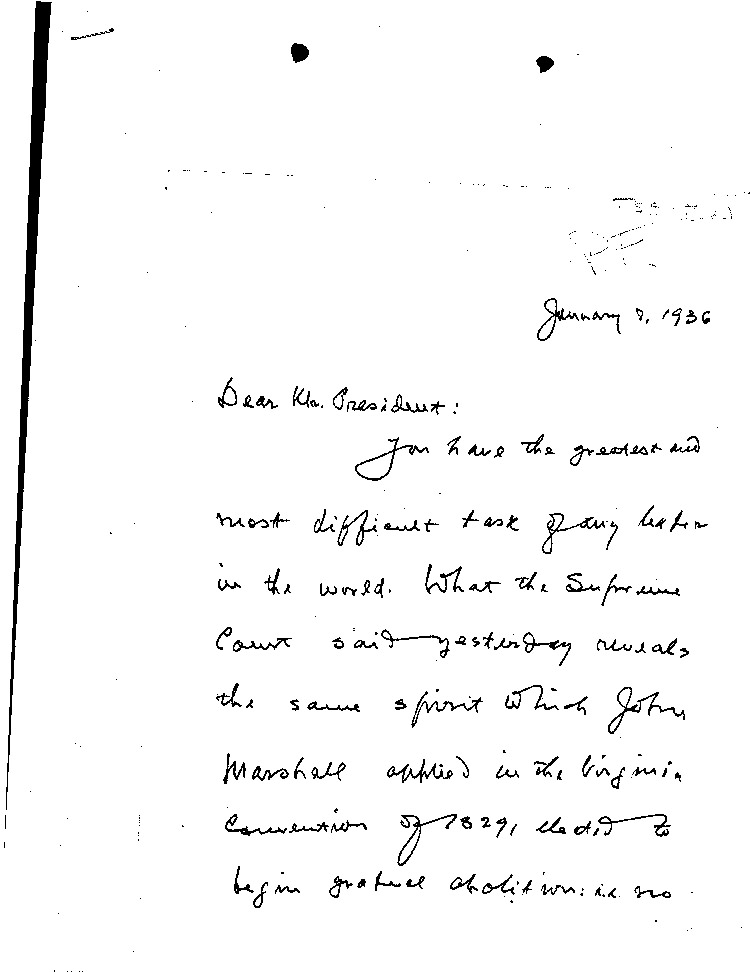 P.F.
January 7, 1936
Dear Mr. President:
You have the greatest and
most difficult task of any leader
in the world. What the Supreme
Court said yesterday reveals
the same spirit which John
Marshall applied in the Virginia
Convention of 1829, elected to
begin gradual abolition: i.e. no